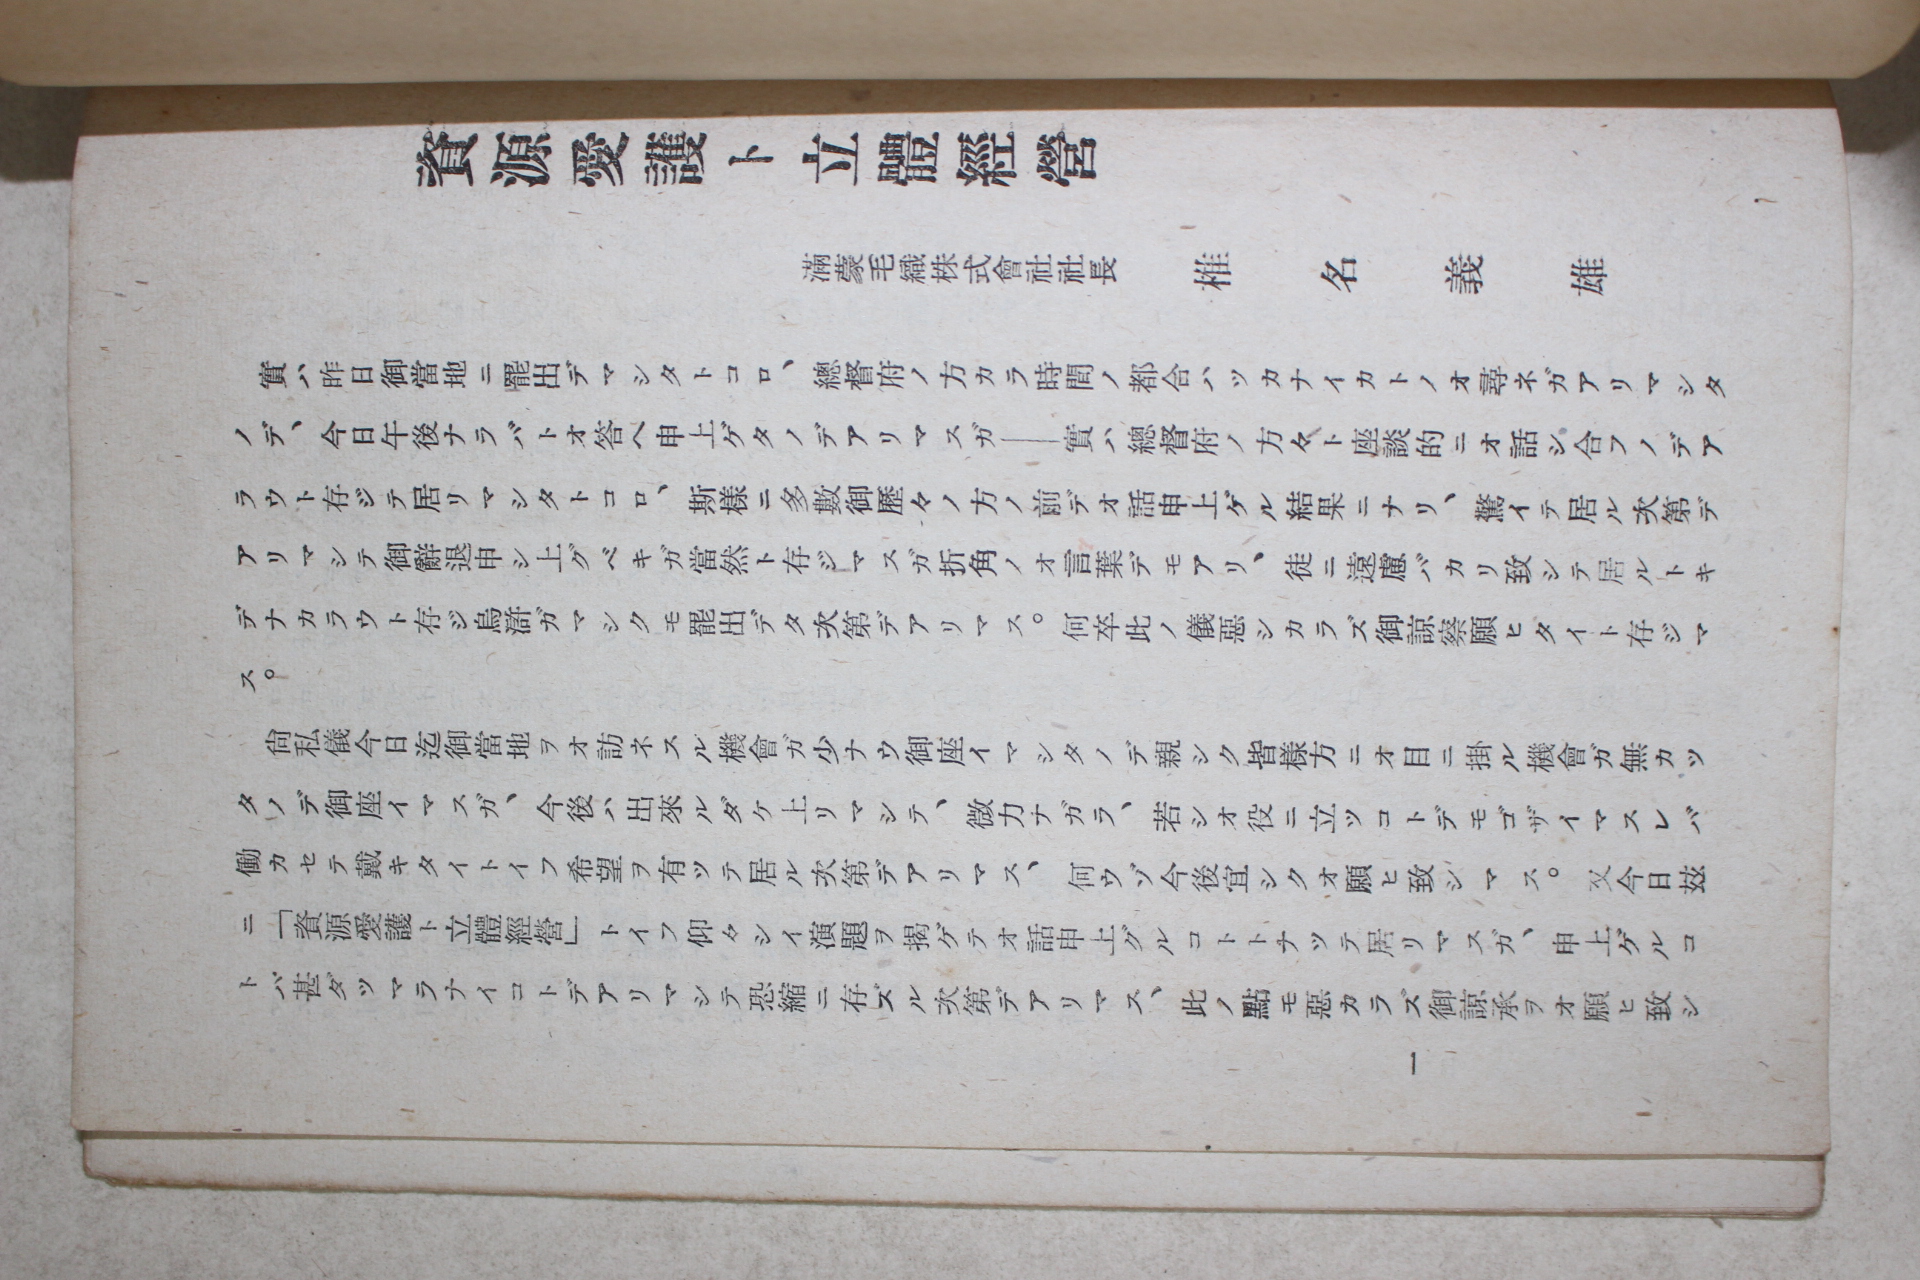 資源愛護ト立體經營
滿蒙毛織株式會社社長 椎名義雄
實ハ昨日御當地ニ罷出デマシタトコロ、總督府ノ方カラ時間ノ都合ハツカナイカトノオ尋ネガアリマシタ
ノデ、今日午後ナラバトオ答ヘ申上ゲタノデアリマスガ――實ハ總督府ノ方々ト座談的ニオ話シ合フノデア
ラウト存ジテ居リマシタトコロ、斯樣ニ多數御歷々ノ方ノ前デオ話申上ゲル結果ニナリ、驚イテ居ル次第デ
アリマシテ御辭退申シ上グベキガ當然ト存ジマスガ折角ノオ言葉デモアリ、徒ニ遠慮バカリ致シテ居ルトキ
デナカラウト存ジ烏滸ガマシクモ罷出デタ次第デアリマス。何卒此ノ儀惡シカラズ御諒察願ヒタイト存ジマ
ス。
尙私儀今日迄御當地ヲオ訪ネスル機會ガ少ナウ御座イマシタノデ親シク皆樣方ニオ目ニ掛ル機會ガ無カツ
タノデ御座イマスガ、今後ハ出來ルダケ上リマシテ、微力ナガラ、若シオ役ニ立ツコトデモゴザイマスレバ
働カセテ戴キタイトイフ希望ヲ有ツテ居ル次第デアリマス、何ウゾ今後宜シクオ願ヒ致シマス。又今日玆
ニ「資源愛護ト立體經營」トイフ仰々シイ演題ヲ揭ゲテオ話申上グルコトトナツテ居リマスガ、申上ゲルコ
トバ甚ダツマラナイコトデアリマシテ恐縮ニ存ズル次第デアリマス、此ノ點モ惡カラズ御諒承ヲオ願ヒ致シ
一